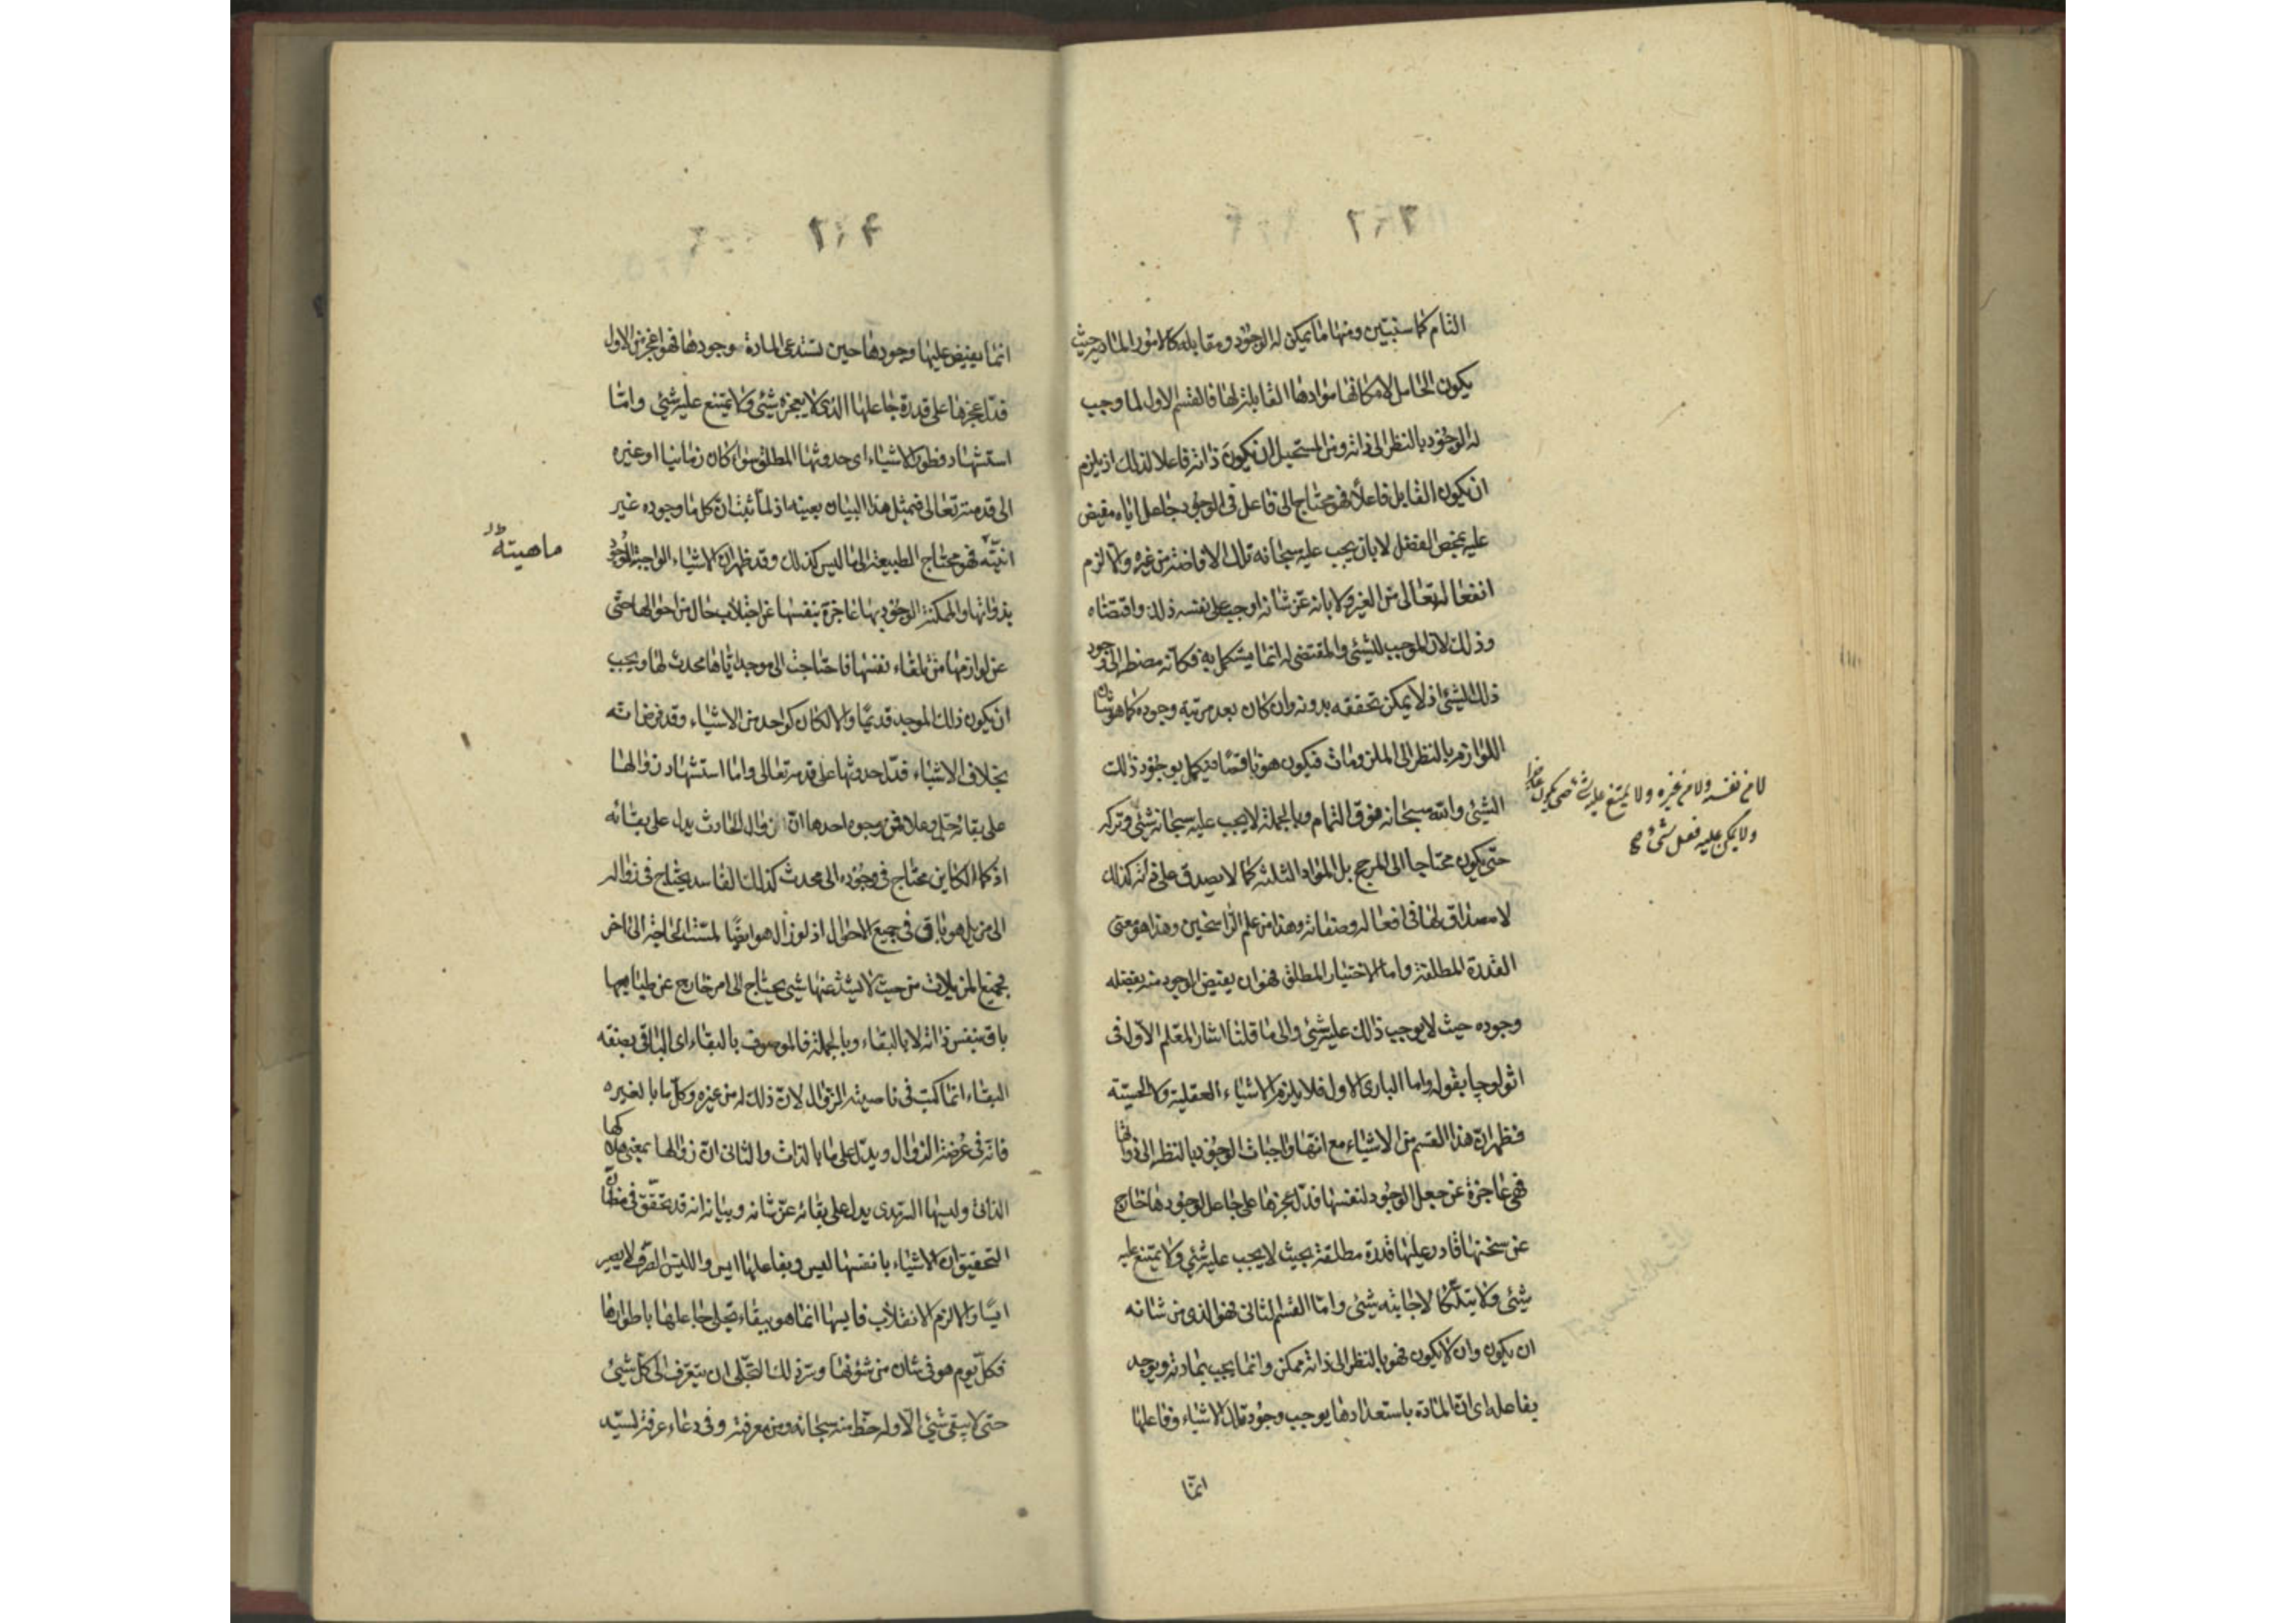 ٢٠٣
التام كما سنبين ومنها ما يمكن له الوجود ومقابله كالامور المادية حيث
يكون الحامل لامكانها موادها القابلة لها فالقسم الاول لما وجب
له الوجود بالنظر الى ذاته ومن المستحيل ان يكون ذاته فاعلا لذلك اذ يلزم
ان يكون القابل فاعلا فهو محتاج الى فاعل في الوجود جاعل اياه مفيض
عليه بمحض الفضل لا بان يجب عليه سبحانه تلك الافاضة من غيره والا لزم
انفعاله تعالى من الغير ولا بانه عز شانه اوجب على نفسه ذلك واقتضاه
وذلك لان الموجب للشيئ والمقتضى له انما يستكمل به فكانه مضطر الى وجود
ذلك الشيئ اذ لا يمكن تحققه بدونه وان كان بعد مرتبة وجوده كما هو شان
اللوازم بالنظر الى الملزومات فيكون هو ناقصا فيكمل بوجود ذلك
الشيئ والله سبحانه فوق التمام وبالجملة لا يجب عليه سبحانه شيئ وتركه
حتى يكون محتاجا الى المرجح بل المواد الثلثة كما لا يصدق على ذاته كذلك
لا مصداق لها في افعاله وصفاته وهذا من علم الراسخين وهذا هو معنى
القدرة المطلقة واما الاختيار المطلق فهو ان يفيض الوجود منه بفضله
وجوده حيث لا يوجب ذلك عليه شيئ والى ما قلنا اشار المعلم الاول في
اثولوجيا بقوله واما البارى الاول فلا يلزمه الاشياء العقلية والحسية
فظهر ان هذا القسم من الاشياء مع انها واجبات الوجود بالنظر الى ذواتها
فهي عاجزة عن جعل الوجود لنفسها فدل عجزها على جاعل لوجودها خارج
عن سخنها قادر عليها قدرة مطلقة بحيث لا يجب عليه شيئ ولا يمتنع عليه
شيئ ولا يتلكأ لاجابته شيئ واما القسم الثانى فهو الذى من شانه
ان يكون وان لا يكون فهو بالنظر الى ذاته ممكن وانما يجب بمادته ويوجد
بفاعله اى ان المادة باستعدادها يوجب وجود تلك الاشياء وفاعلها
انما
لا من نفسه ولا من غيره ولا يمتنع عليه شئ حتى يكون عاجزا
ولا يمكن عليه فعل شئ
٢٠٤
انما يفيض عليها وجودها حين تستدعى المادة وجودها فهو اعجز من الاول
فدل عجزها على قدرة جاعلها الذى لا يعجزه شيئ ولا يمتنع عليه شيئ واما
استشهاد فطور الاشياء اى حدوثها المطلق سواء كان زمانيا او غيره
الى قدمته تعالى فبمثل هذا البيان بعينه اذ لما ثبت ان كل ما وجوده غير
انيته فهو محتاج الطبيعة الى ما ليس كذلك وقد ظهر ان الاشياء الواجبة الوجود
بذواتها والممكنة الوجود بها عاجزة بنفسها عن اجتلاب حال من احوالها حتى
عن لوازمها من تلقاء نفسها فاحتاجت الى موجد اياها محدث لها ويجب
ان يكون ذلك الموجد قديما والا لكان كواحد من الاشياء وقد فرض انه
بخلاف الاشياء فدل حدوثها على قدمه تعالى واما استشهاد زوالها
على بقائه جل وعلا فمن وجوه احدها ان زوال الحادث يدل على بقائه
اذ كما الكاين محتاج في وجوده الى محدث كذلك الفاسد يحتاج في زواله
الى مزيل هو باق في جميع الاحوال اذ لو زال هو ايضا لمست الحاجة الى اخر
فجميع المزيلات من حيث لا يشذ عنها شيئ يحتاج الى امر خارج عن طبايعها
باق بنفس ذاته لا بالبقاء وبالجملة فالموصوف بالبقاء اى الباقى بصفة
البقاء انما كتب في ناصيته الزوال لان ذلك له من غيره وكل ما بالغير
فانه في عرضة الزوال ويدل على ما بالذات والثانى ان زوالها بمعنى هلاكها
الذاتى وليسها السرمدى يدل على بقائه عز شانه وبيانه انه قد تحقق في مظان
التحقيق ان الاشياء بانفسها ليس وبفاعلها ايس والليس الصرف لا يصير
ايسا والا لزم الانقلاب فايسها انما هو ببقاء تجلى جاعلها باطوارها
فكل يوم هو في شان من شؤنها وسر ذلك التجلى ان يتعرف الى كل شيئ
حتى لا يبقى شيئ الا وله حظ منه سبحانه ومن معرفته وفى دعاء عرفة لسيد
ماهيته